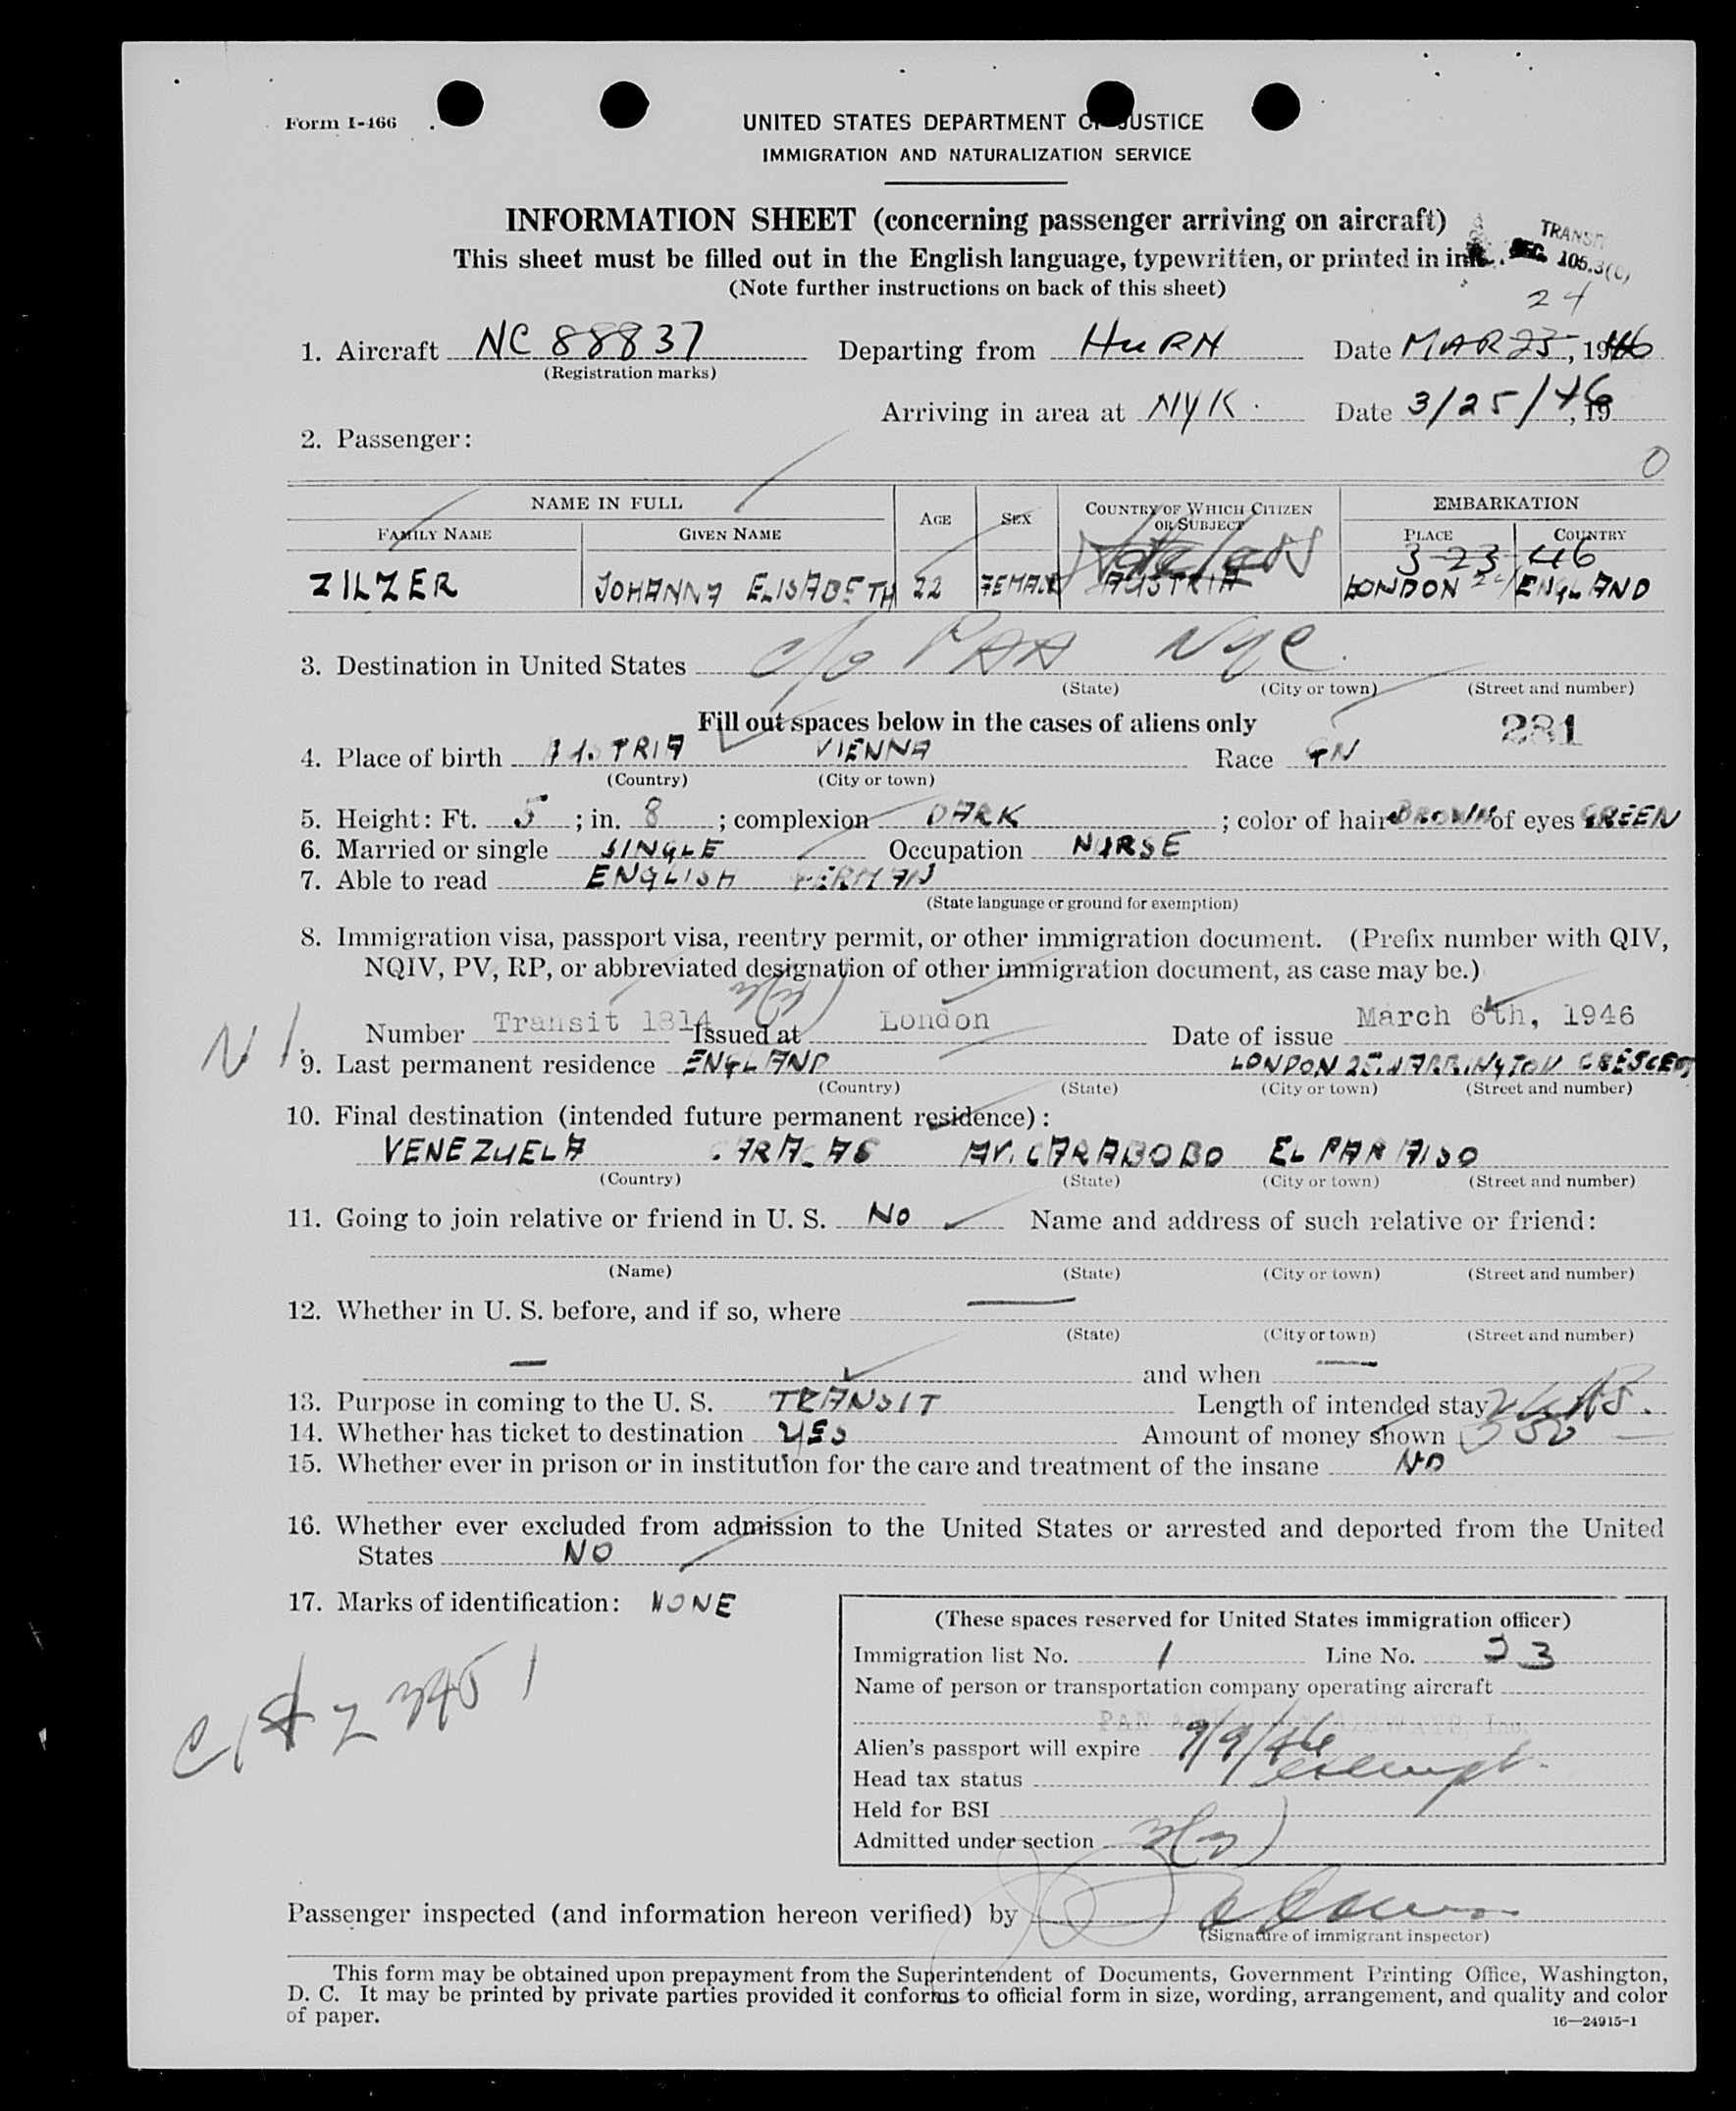 Form I-466
UNITED STATES DEPARTMENT OF JUSTICE
IMMIGRATION AND NATURALIZATION SERVICE
INFORMATION SHEET (concerning passenger arriving on aircraft)
This sheet must be filled out in the English language, typewritten, or printed in ink.
TRANSIT
SEC. 105.3(C)
(Note further instructions on back of this sheet)
24
1. Aircraft NC 88837 Departing from HURN Date MAR 25, 1946
(Registration marks)
Arriving in area at NYK. Date 3/25/46, 19
2. Passenger:
0
NAME IN FULL AGE SEX COUNTRY OF WHICH CITIZEN OR SUBJECT EMBARKATION
FAMILY NAME GIVEN NAME PLACE COUNTRY
Stateless 3-23-46
ZILZER JOHANNA ELISABETH 22 FEMALE AUSTRIA LONDON ENGLAND
3. Destination in United States c/o PAA NYC.
(State) (City or town) (Street and number)
Fill out spaces below in the cases of aliens only
281
4. Place of birth VIENNA Race
(Country) (City or town)
5. Height: Ft. 5; in. 8; complexion DARK; color of hair BROWN of eyes GREEN
6. Married or single SINGLE Occupation NURSE
7. Able to read ENGLISH GERMAN
(State language or ground for exemption)
8. Immigration visa, passport visa, reentry permit, or other immigration document. (Prefix number with QIV,
NQIV, PV, RP, or abbreviated designation of other immigration document, as case may be.)
Number Transit 1814 Issued at London Date of issue March 6th, 1946
9. Last permanent residence ENGLAND LONDON
(Country) (State) (City or town) (Street and number)
10. Final destination (intended future permanent residence):
VENEZUELA CARACAS AV. CARABOBO EL PARAISO
(Country) (State) (City or town) (Street and number)
11. Going to join relative or friend in U. S. NO Name and address of such relative or friend:
(Name) (State) (City or town) (Street and number)
12. Whether in U. S. before, and if so, where —
(State) (City or town) (Street and number)
— and when —
13. Purpose in coming to the U. S. TRANSIT Length of intended stay
14. Whether has ticket to destination YES Amount of money shown
15. Whether ever in prison or in institution for the care and treatment of the insane NO
16. Whether ever excluded from admission to the United States or arrested and deported from the United
States NO
17. Marks of identification: NONE
(These spaces reserved for United States immigration officer)
Immigration list No. 1 Line No. 23
Name of person or transportation company operating aircraft
PAN AMERICAN AIRWAYS, Inc.
Alien's passport will expire 9/9/46
Head tax status exempt.
Held for BSI
Admitted under section 3(3)
Passenger inspected (and information hereon verified) by
(Signature of immigrant inspector)
This form may be obtained upon prepayment from the Superintendent of Documents, Government Printing Office, Washington,
D. C. It may be printed by private parties provided it conforms to official form in size, wording, arrangement, and quality and color
of paper.
16—24915-1